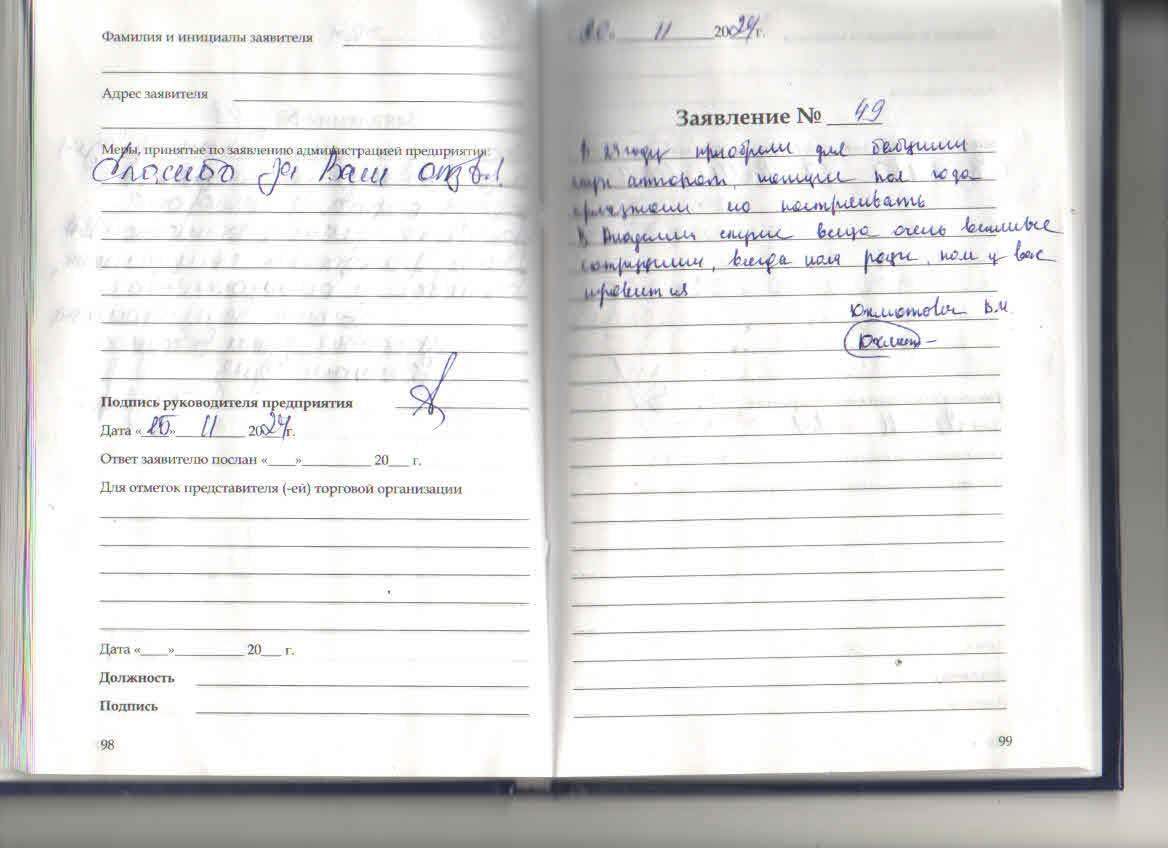 Фамилия и инициалы заявителя
Адрес заявителя
Меры, принятые по заявлению администрацией предприятия:
Спасибо за Ваш отзыв!
Подпись руководителя предприятия
Дата « » 11 2024г.
Ответ заявителю послан «___»__________ 20___ г.
Для отметок представителя (-ей) торговой организации
Дата «___»__________ 20___ г.
Должность
Подпись
98
11 2024г.
Заявление № 49
В 23 году приобрели для бабушки
аппарат, пол года
но настраивать
В Академии всегда очень вежливые
сотрудники, всегда нам рады, нам у вас
нравится
99